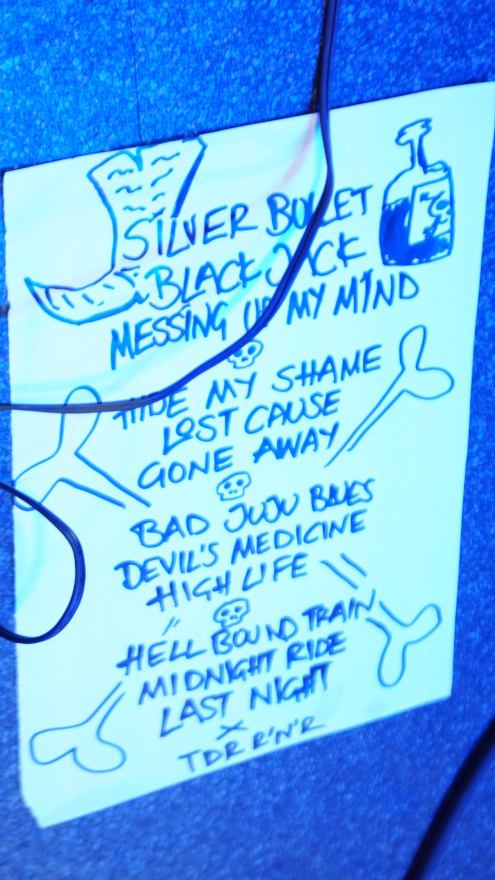 SILVER BULLET
BLACK JACK
MESSING UP MY MIND
HIDE MY SHAME
LOST CAUSE
GONE AWAY
BAD JUJU BLUES
DEVIL'S MEDICINE
HIGH LIFE
HELL BOUND TRAIN
MIDNIGHT RIDE
LAST NIGHT
X
TDR R'N'R